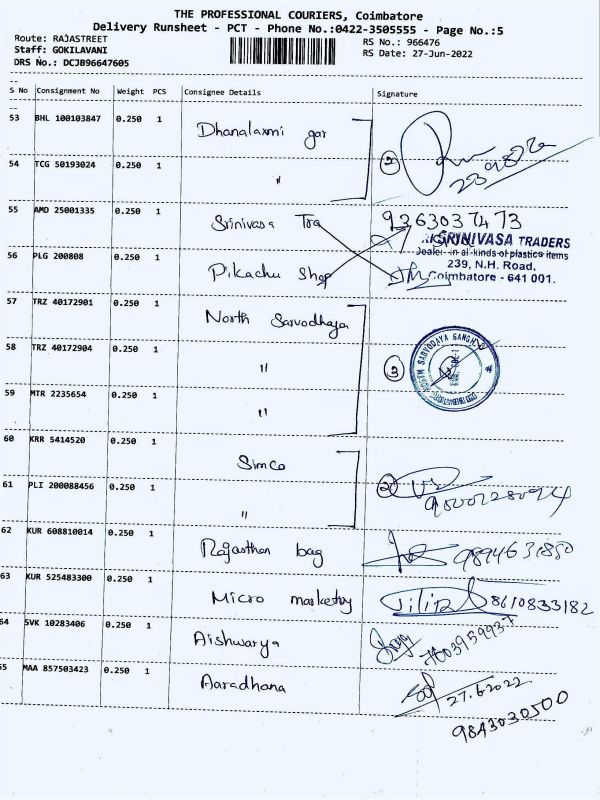 THE PROFESSIONAL COURIERS, Coimbatore
Delivery Runsheet - PCT - Phone No.:0422-3505555 - Page No.:5
Route: RAJASTREET
RS No.: 966476
Staff: GOKILAVANI
RS Date: 27-Jun-2022
DRS No.: DCJB96647605
S No Consignment No Weight PCS Consignee Details Signature
53 BHL 100103847 0.250 1 Dhanalaxmi gar
54 TCG 50193024 0.250 1 "
2
55 AMD 25001335 0.250 1 Srinivasa Tra 9363037473
SRINIVASA TRADERS
Dealer in all kinds of plastics items
239, N.H. Road,
Coimbatore - 641 001.
56 PLG 200808 0.250 1 Pikachu Shop
57 TRZ 40172901 0.250 1 North Sarvodhaya
58 TRZ 40172904 0.250 1 "
3
SARVODAYA SANGH
59 MTR 2235654 0.250 1 "
60 KRR 5414520 0.250 1 Simco
61 PLI 200088456 0.250 1 "
2
62 KUR 608810014 0.250 1 Rajasthan bag 9894631850
63 KUR 525483300 0.250 1 Micro marketing 8610833182
64 SVK 10283406 0.250 1 Aishwarya
65 MAA 857503423 0.250 1 Aaradhana 27.6.2022
9843030500